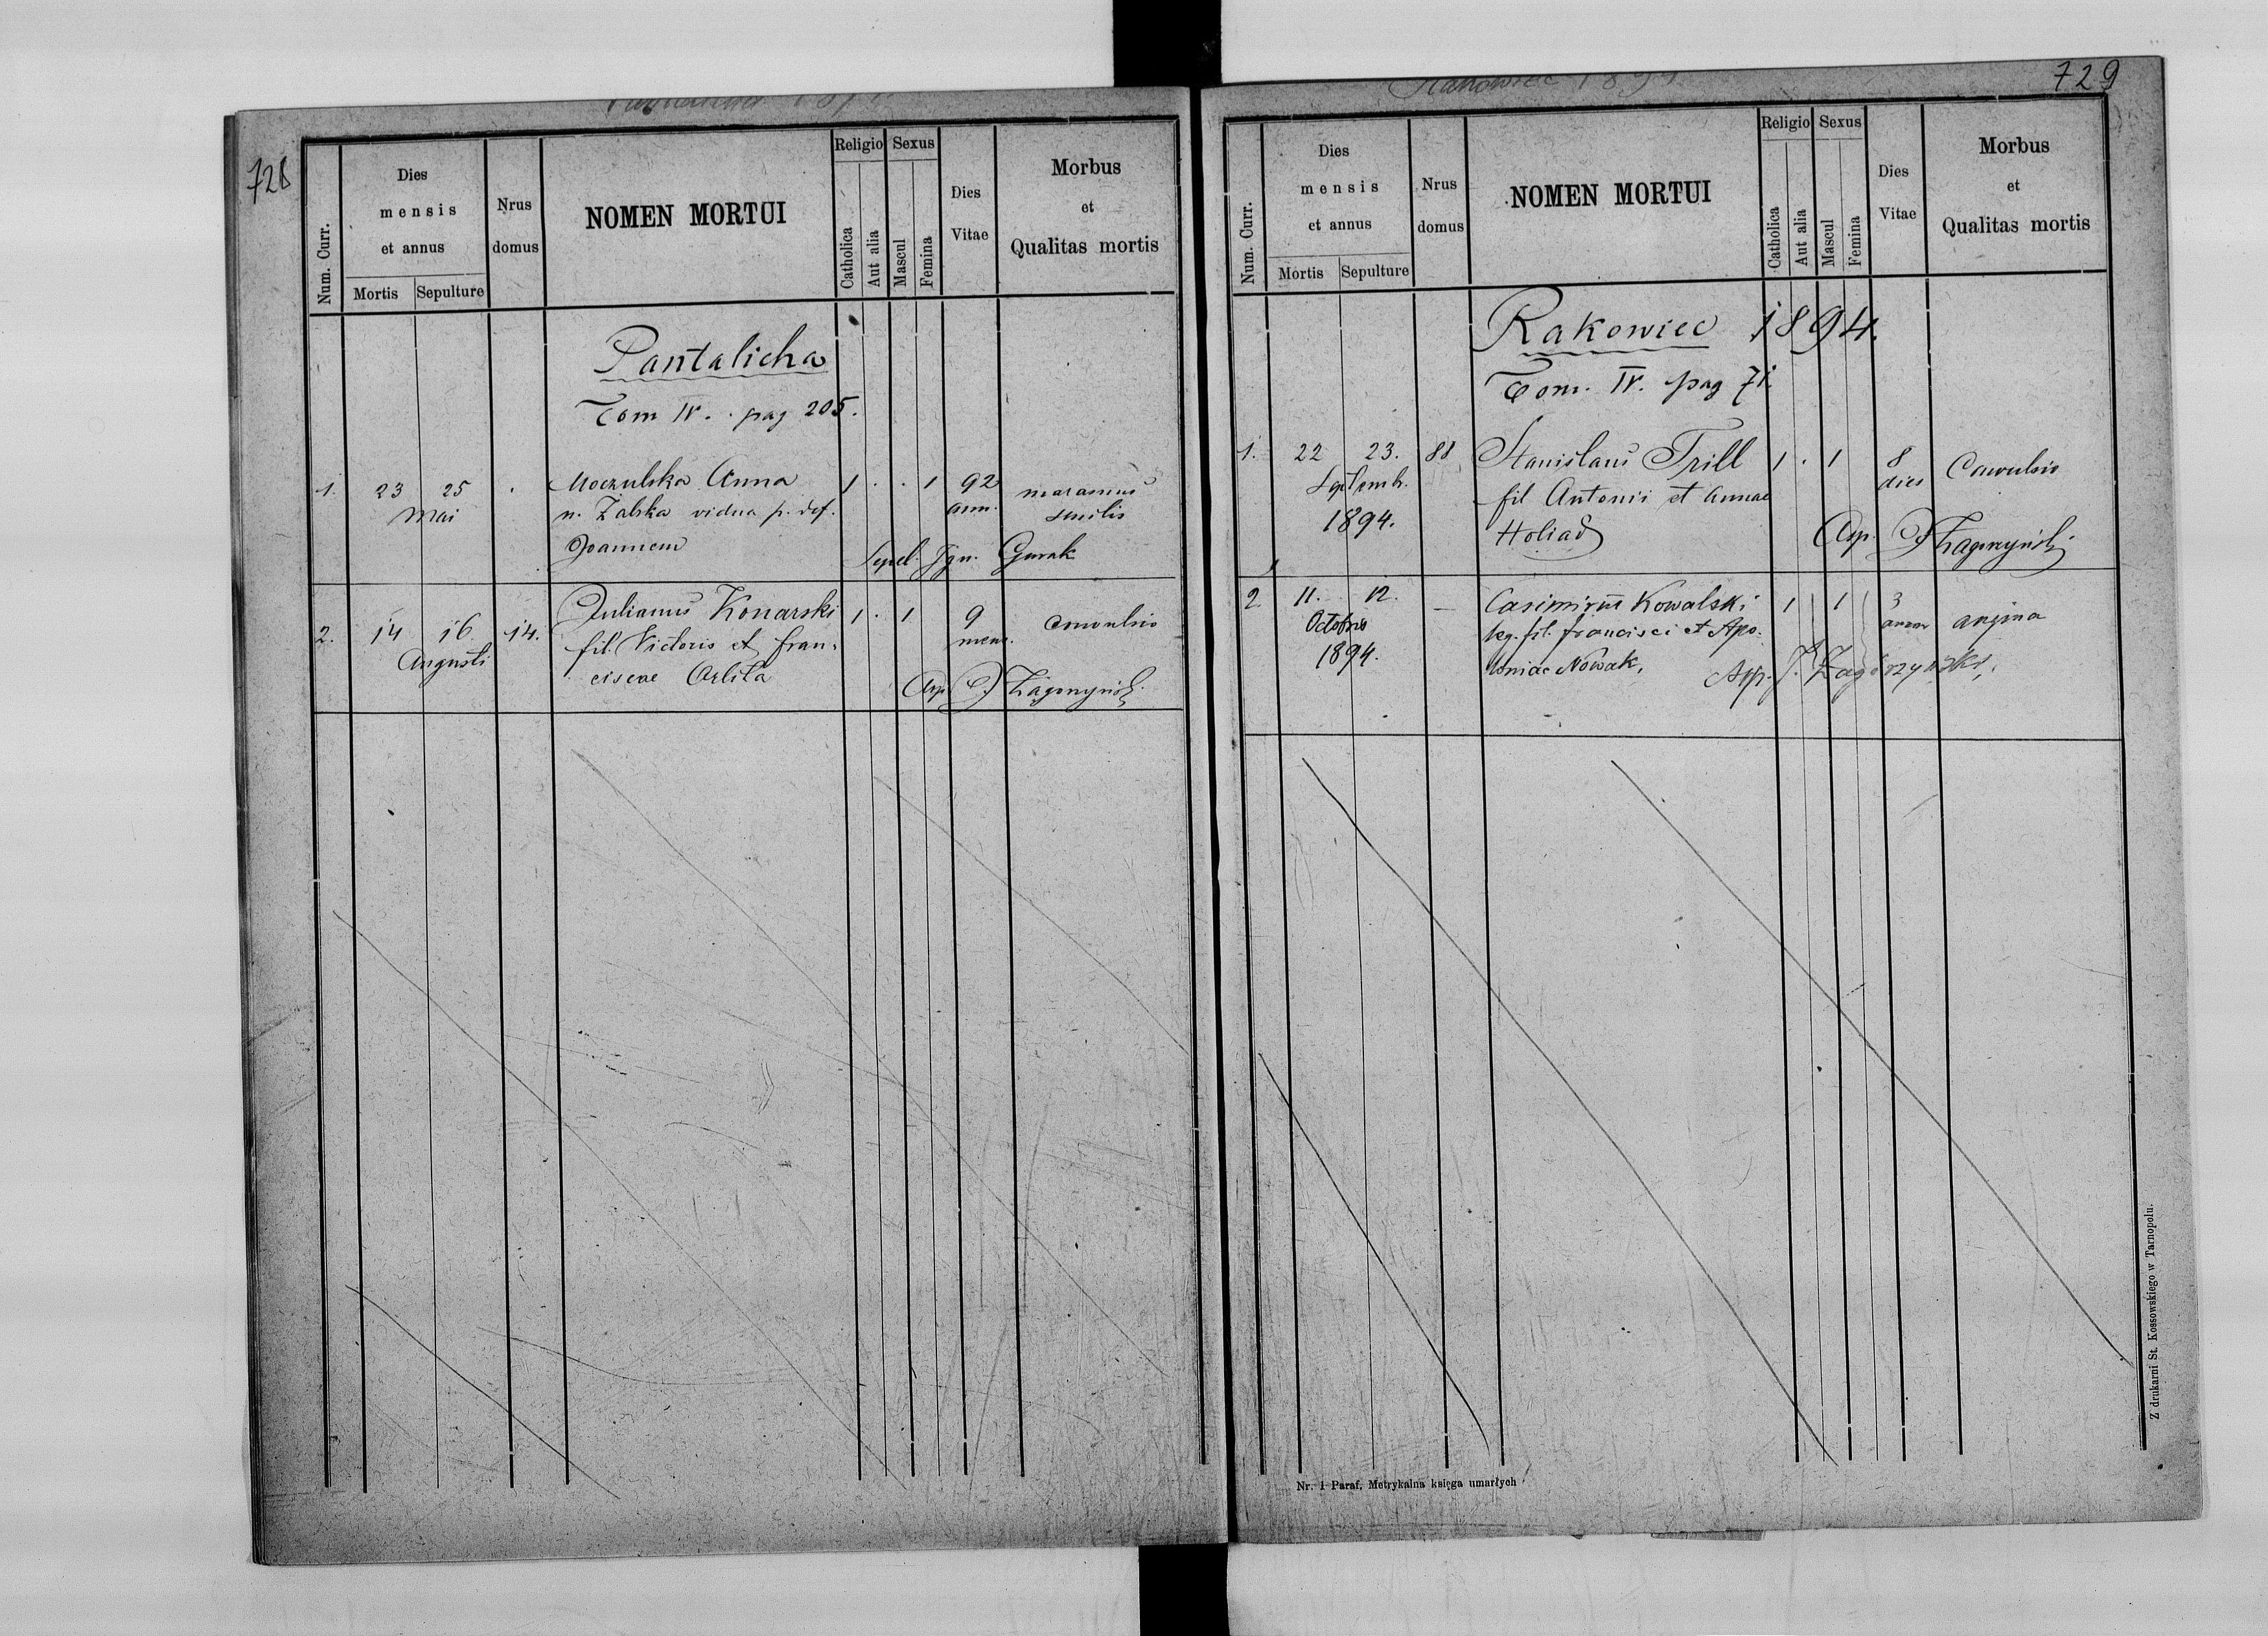 728
Num. Curr.
Dies
mensis
et annus
Mortis Sepulture
Nrus
domus
NOMEN MORTUI
Religio
Catholica
Aut alia
Sexus
Mascul
Femina
Dies
Vitae
Morbus
et
Qualitas mortis
Pantalicha
Tom IV. pag 205.
1. 23 25 . Moczulska Anna 1 . . 1 92 marasmus
Mai n. Zalska vidua p. def. ann. senilis
Joannem Sepel. Ign. Gurak
2. 14 16. 14. Julianus Konarski 1 . 1 9 convulsio
Augusti fil. Victoris et Fran- mens.
ciscae Orlita Asp.
Rakowiec 1894
729
Num. Curr.
Dies
mensis
et annus
Mortis Sepulture
Nrus
domus
NOMEN MORTUI
Religio
Catholica
Aut alia
Sexus
Mascul
Femina
Dies
Vitae
Morbus
et
Qualitas mortis
Rakowiec 1894.
Tom. IV. pag 71.
1. 22 23. 88 Stanislaus Trill 1 . 1 8 Convulsio
Septemb. fil Antonii et Annae dies
1894. Holiad Asp.
2. 11. 12. — Casimirus Kowalski 1 1 3 angina
Octobris leg. fil. Francisci et Apo- annor
1894. loniae Nowak, App. J. Zagórzyński,
Nr. 1 Paraf. Metrykalna księga umarłych
Z drukarni St. Kossowskiego w Tarnopolu.